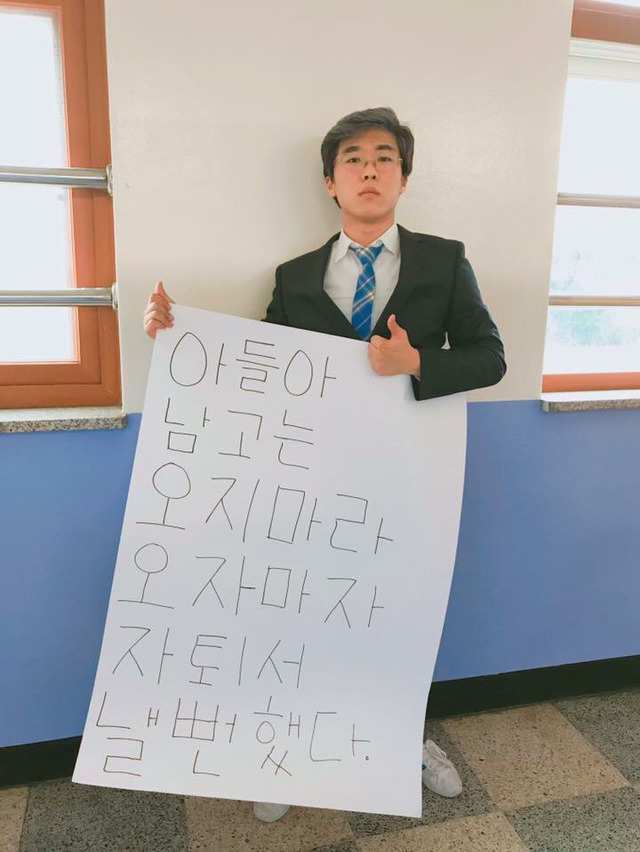 아들아
남고는
오지마라
오자마자
자퇴서
낼뻔했다.